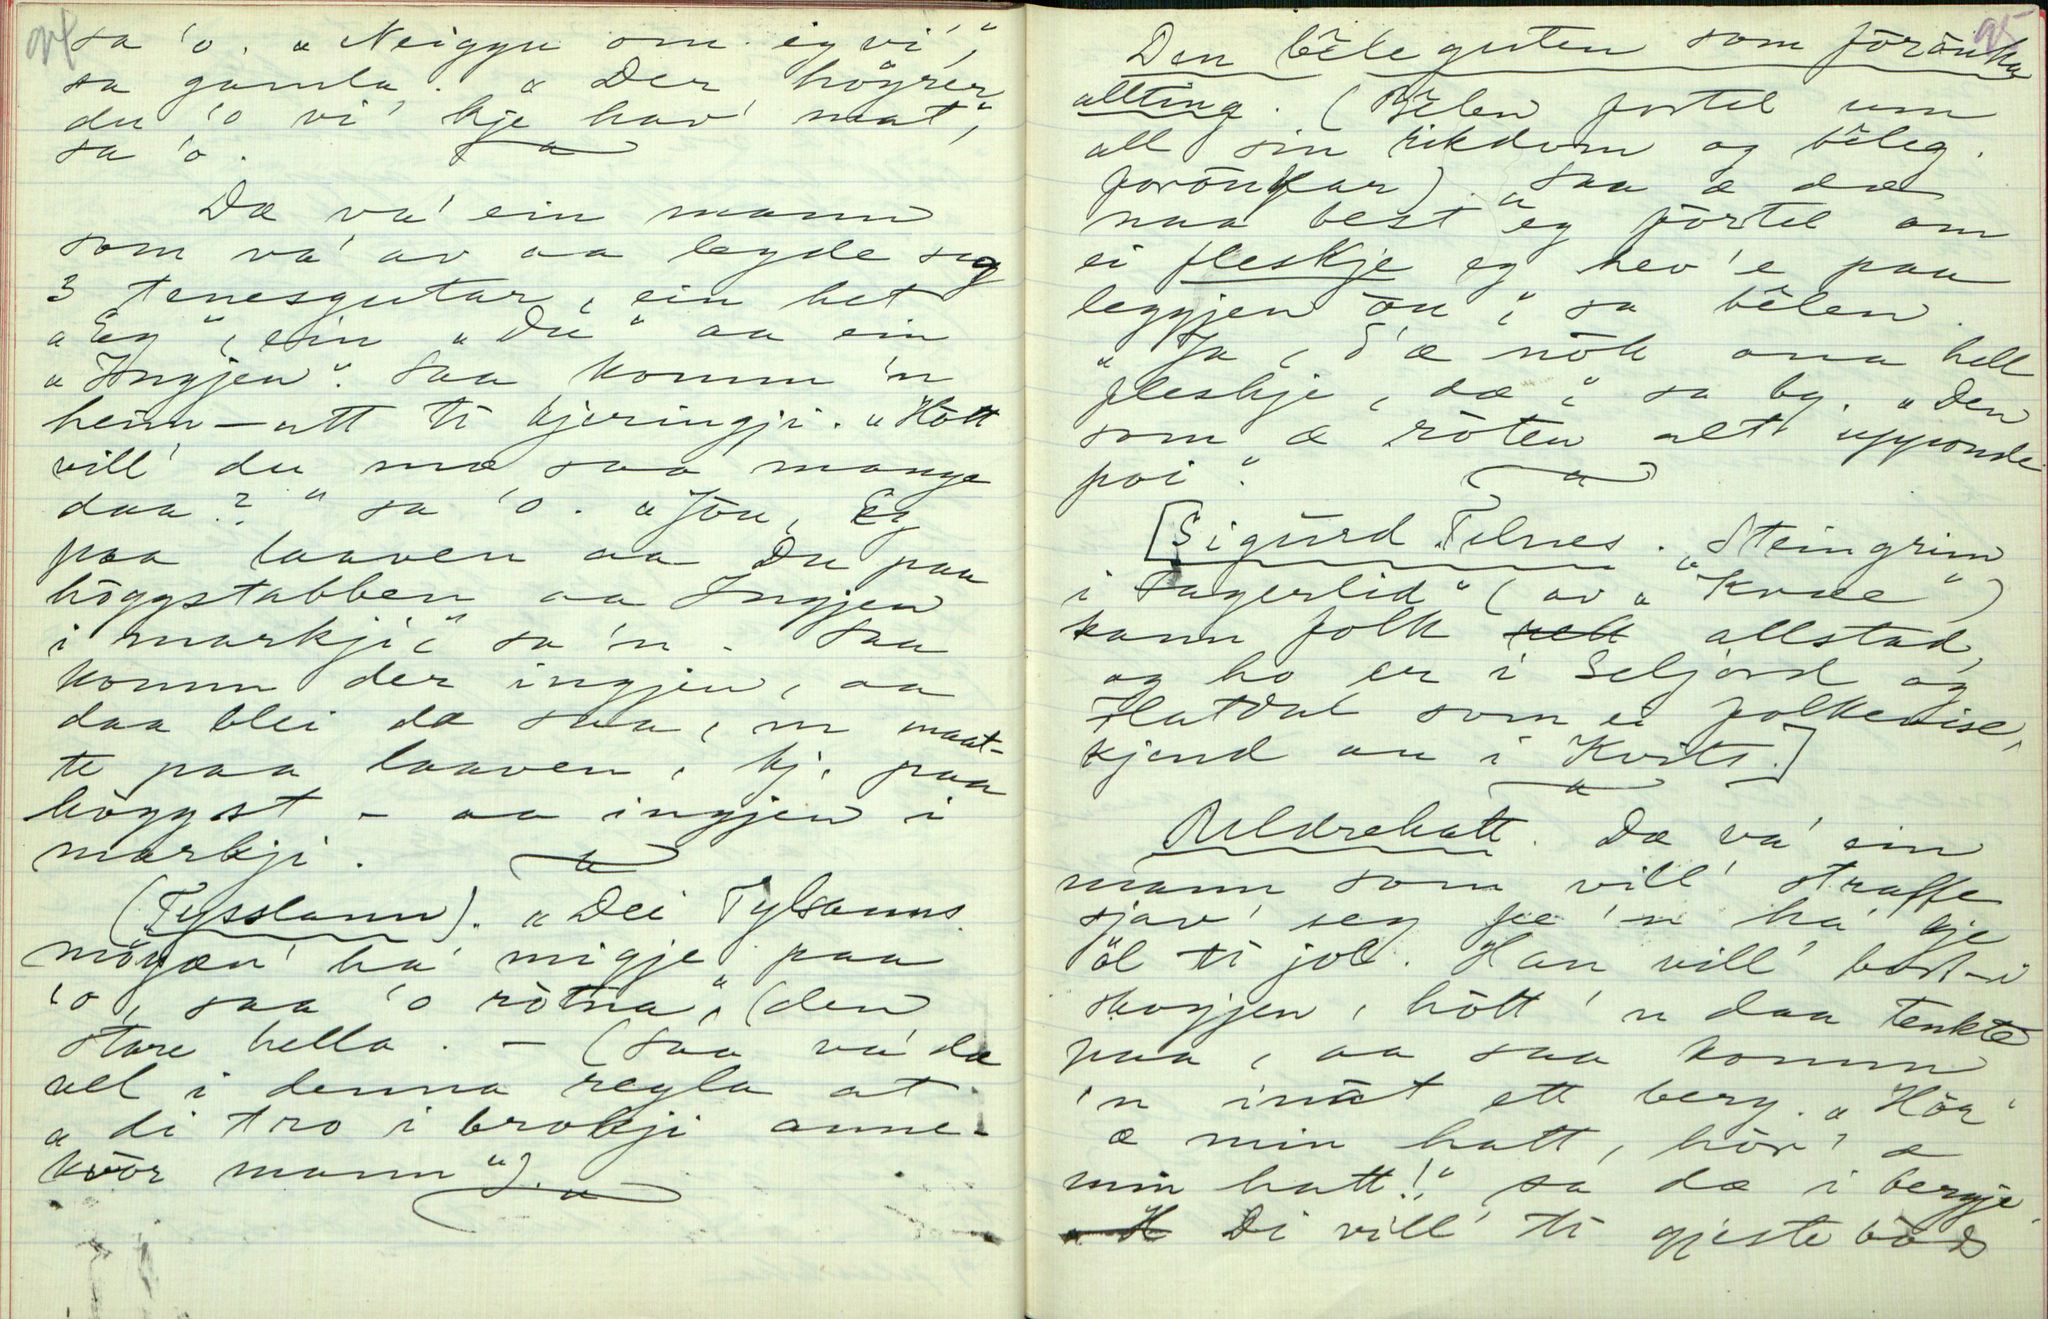 94
sa 'o. "Neiggu om eg vi'",
sa gamla. "Der höyrer
du 'o vi' kje hav' mat",
sa 'o.
Dæ va' ein mann
som va' av aa leyde seg
3 tenesgutar, ein het
"Eg", ein "Du" aa ein
"Ingjen". Saa komm 'n
heim-att ti kjeringji. "Hött
vill' du mæ saa mange
daa?" sa 'o. "Jöu, Eg
paa laaven aa Du paa
höggstabben aa Ingjen
i markji" sa 'n. Saa
komm der ingjen, aa
daa blei dæ saa, 'n maat-
te paa laaven, kj. paa
höggst - aa ingjen i
markji.
(Tysslann). "Dei Tylsanns
mögæn' ha' migje paa
'o, saa 'o rötna", (den
stare hella. - (Saa va' dæ
vel i denna regla at
"di tro i brokji anne-
kvör mann").
95
Den bêle guten som förönka
allting. (Bêlen fortel um
all sin rikdom og bêleg.
forönkar). "Saa æ dæ
naa best eg förtel om
ei fleskje eg hev'e paa
leggjen öu", sa bêlen.
"Ja, d'æ nök ona hell
fleskje, dæ", sa by. "Den
som æ röten alt uppvonde
poi".
[Sigurd Felnes. "Steingrim
i Fagerlid" (av "Kvæe")
kann folk rett allstad,
og ho er i Seljord og
Flatdal som ei folkevise,
kjend au i Kvits.]
Uldrehatt. Dæ va' ein
mann som vill' straffe
sjav' seg fæ 'n ha' gje
öl ti jol. Han vill' bort-i
skogjen, hött 'n daa tenkte
paa, aa saa komm
'n inåt ett berg. "Höu'
æ min hatt, hör' æ
min hatt!" sa dæ i bergje.
"H Di vill' ti gjestebös